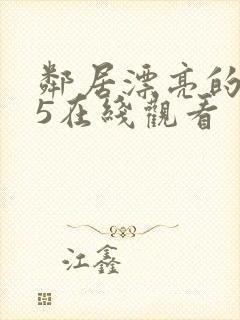 鄰居漂亮的
5在綫觀看
江鑫